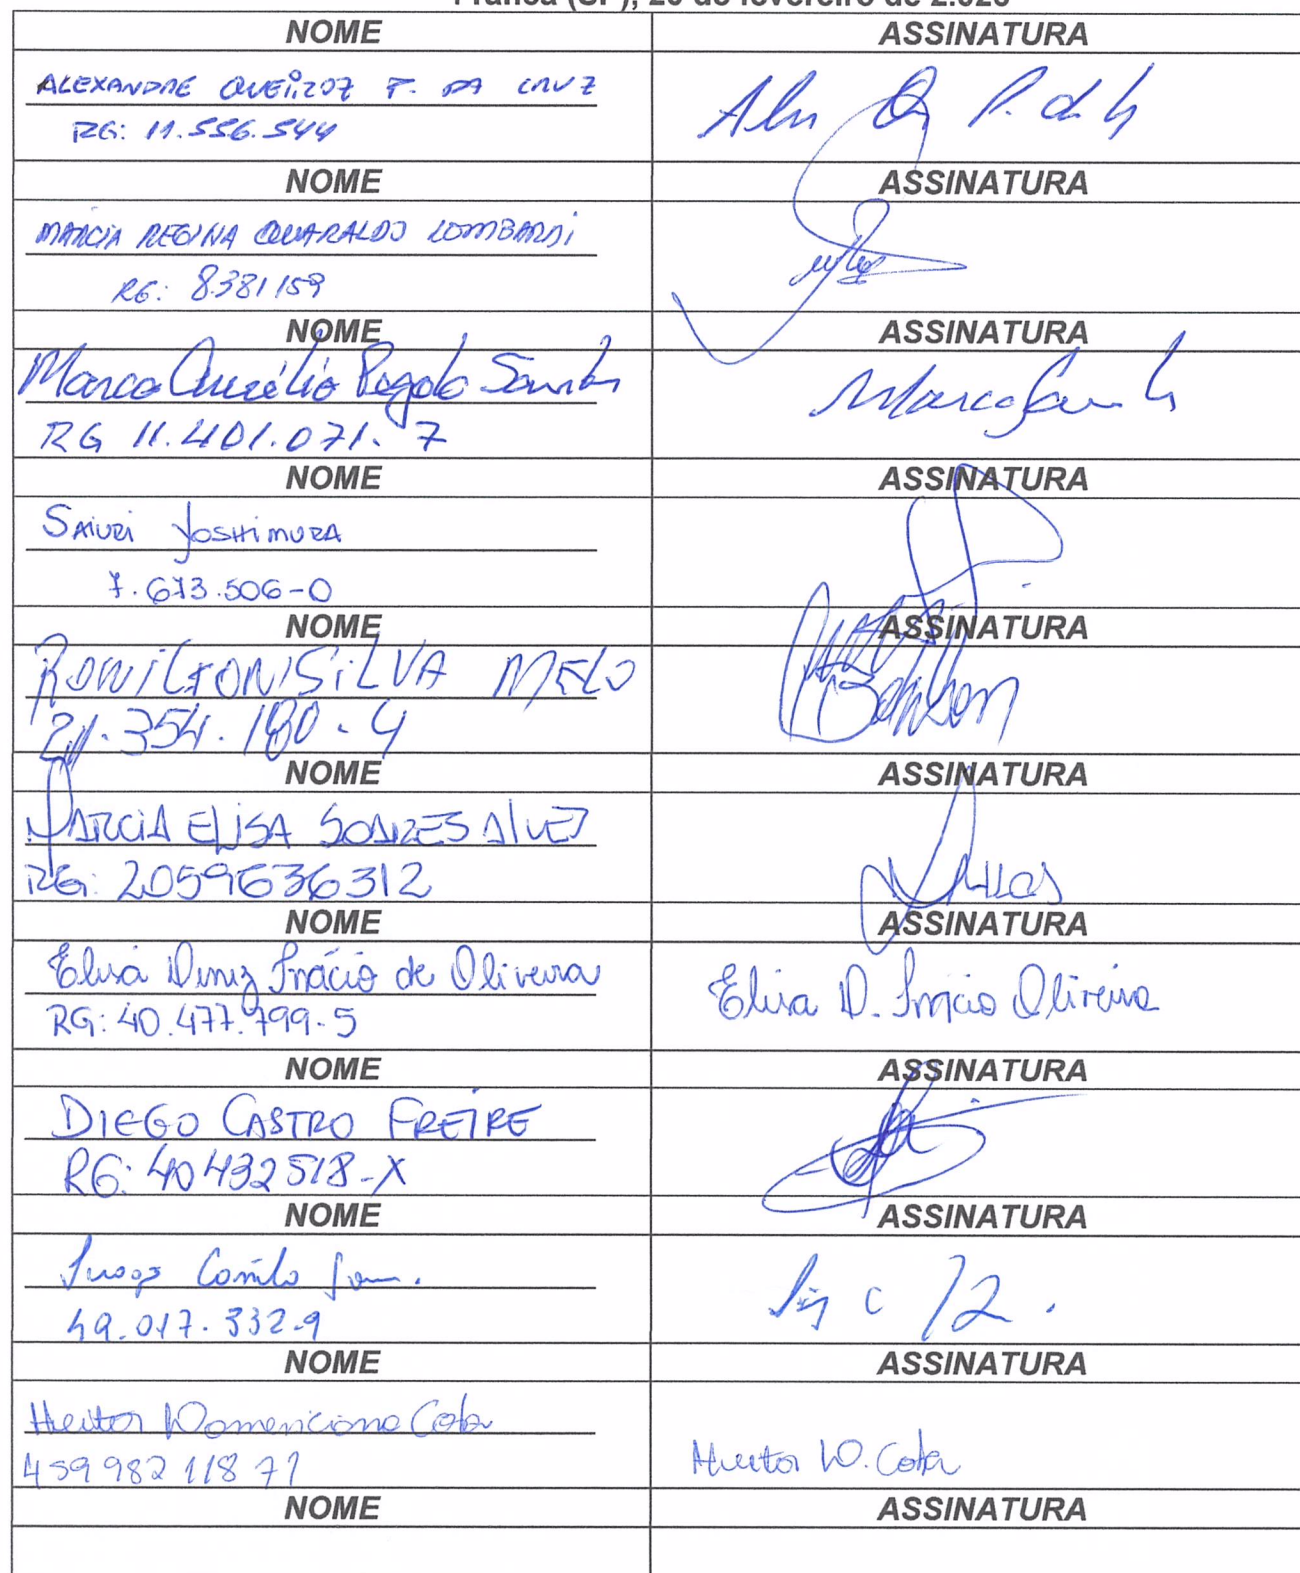 NOME ASSINATURA
ALEXANDRE QUEIROZ P. DA CRUZ
RG: 11.556.544
NOME ASSINATURA
MARCIA REGINA QUARALDO LOMBARDI
RG: 8381159
NOME ASSINATURA
Marco Aurélio
RG 11.401.071.7
NOME ASSINATURA
SAIURI YOSHIMURA
7.673.506-0
NOME ASSINATURA
ROWILTON SILVA MELO
21.354.180-4
NOME ASSINATURA
MARCIA ELISA SOARES ALVES
RG: 2059636312
NOME ASSINATURA
Elisa Diniz Inácio de Oliveira Elisa D. Inácio Oliveira
RG: 40.477.799-5
NOME ASSINATURA
DIEGO CASTRO FREIRE
RG: 40432518-X
NOME ASSINATURA
Camilo
49.017.332-9
NOME ASSINATURA
Heitor Domenciano Cota
459 982 118 71 Heitor D. Cota
NOME ASSINATURA